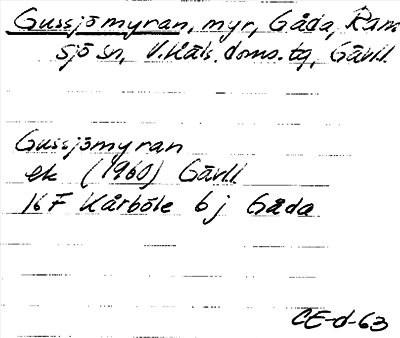 Gussjömyran, myr, Gåda, Ram
sjö sn, V. Häls. doms. tg, Gävl.l.
Gussjömyran
ek (1960) Gävl.l
16 F Kårböle 6 j Gåda
CE-d-63